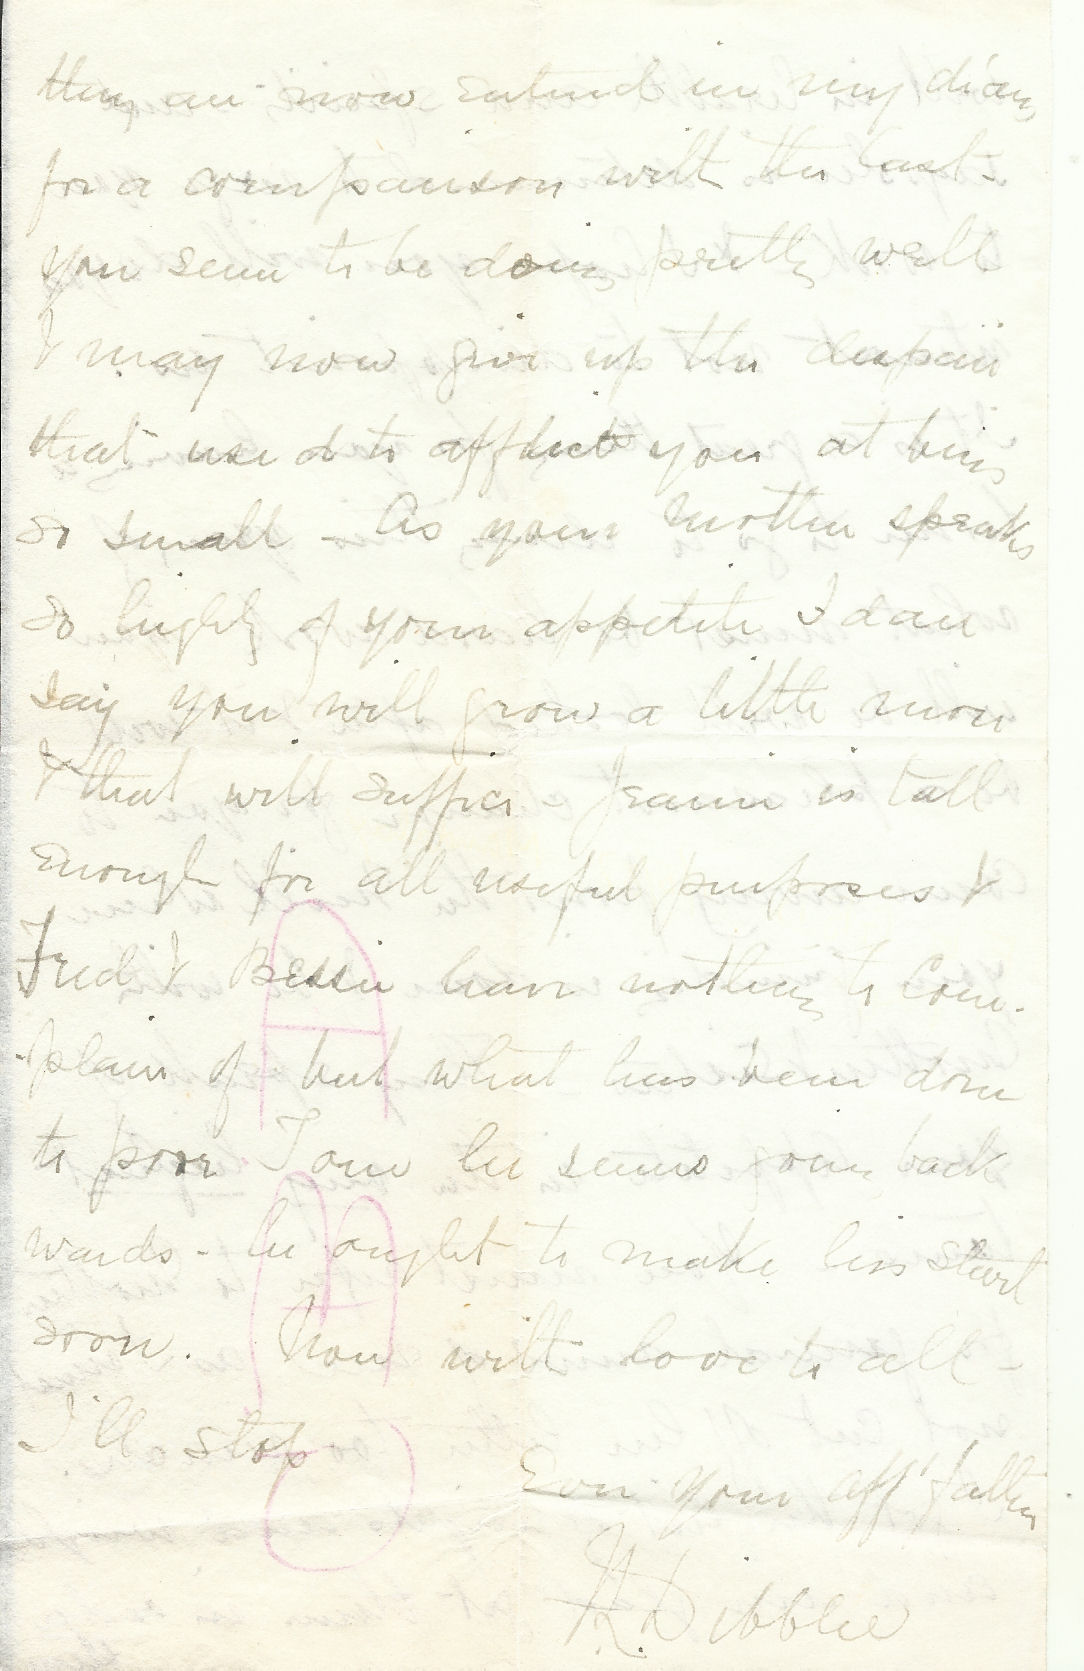 they are now entered in my diary
for a comparison with the last.
you seem to be doing pretty well
& may now give up the despair
that used to afflict you at being
so small - As your mother speaks
so highly of your appetite I dare
say you will grow a little more
& that will suffice. Jeanie is tall
enough for all useful purposes &
Fred & Bessie have nothing to com-
-plain of but what has been done
to poor Tom he seems going back
wards - he ought to make his start
soon. Now with love to all -
I'll stop
Ever your aff' father
Dibblee